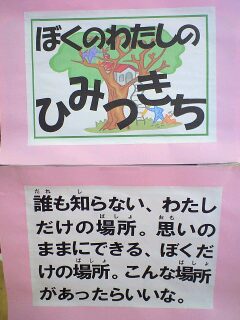 ぼくのわたしの
ひみつきち
誰も知らない、わたし
だけの場所。思いの
ままにできる、ぼくだ
けの場所。こんな場所
があったらいいな。